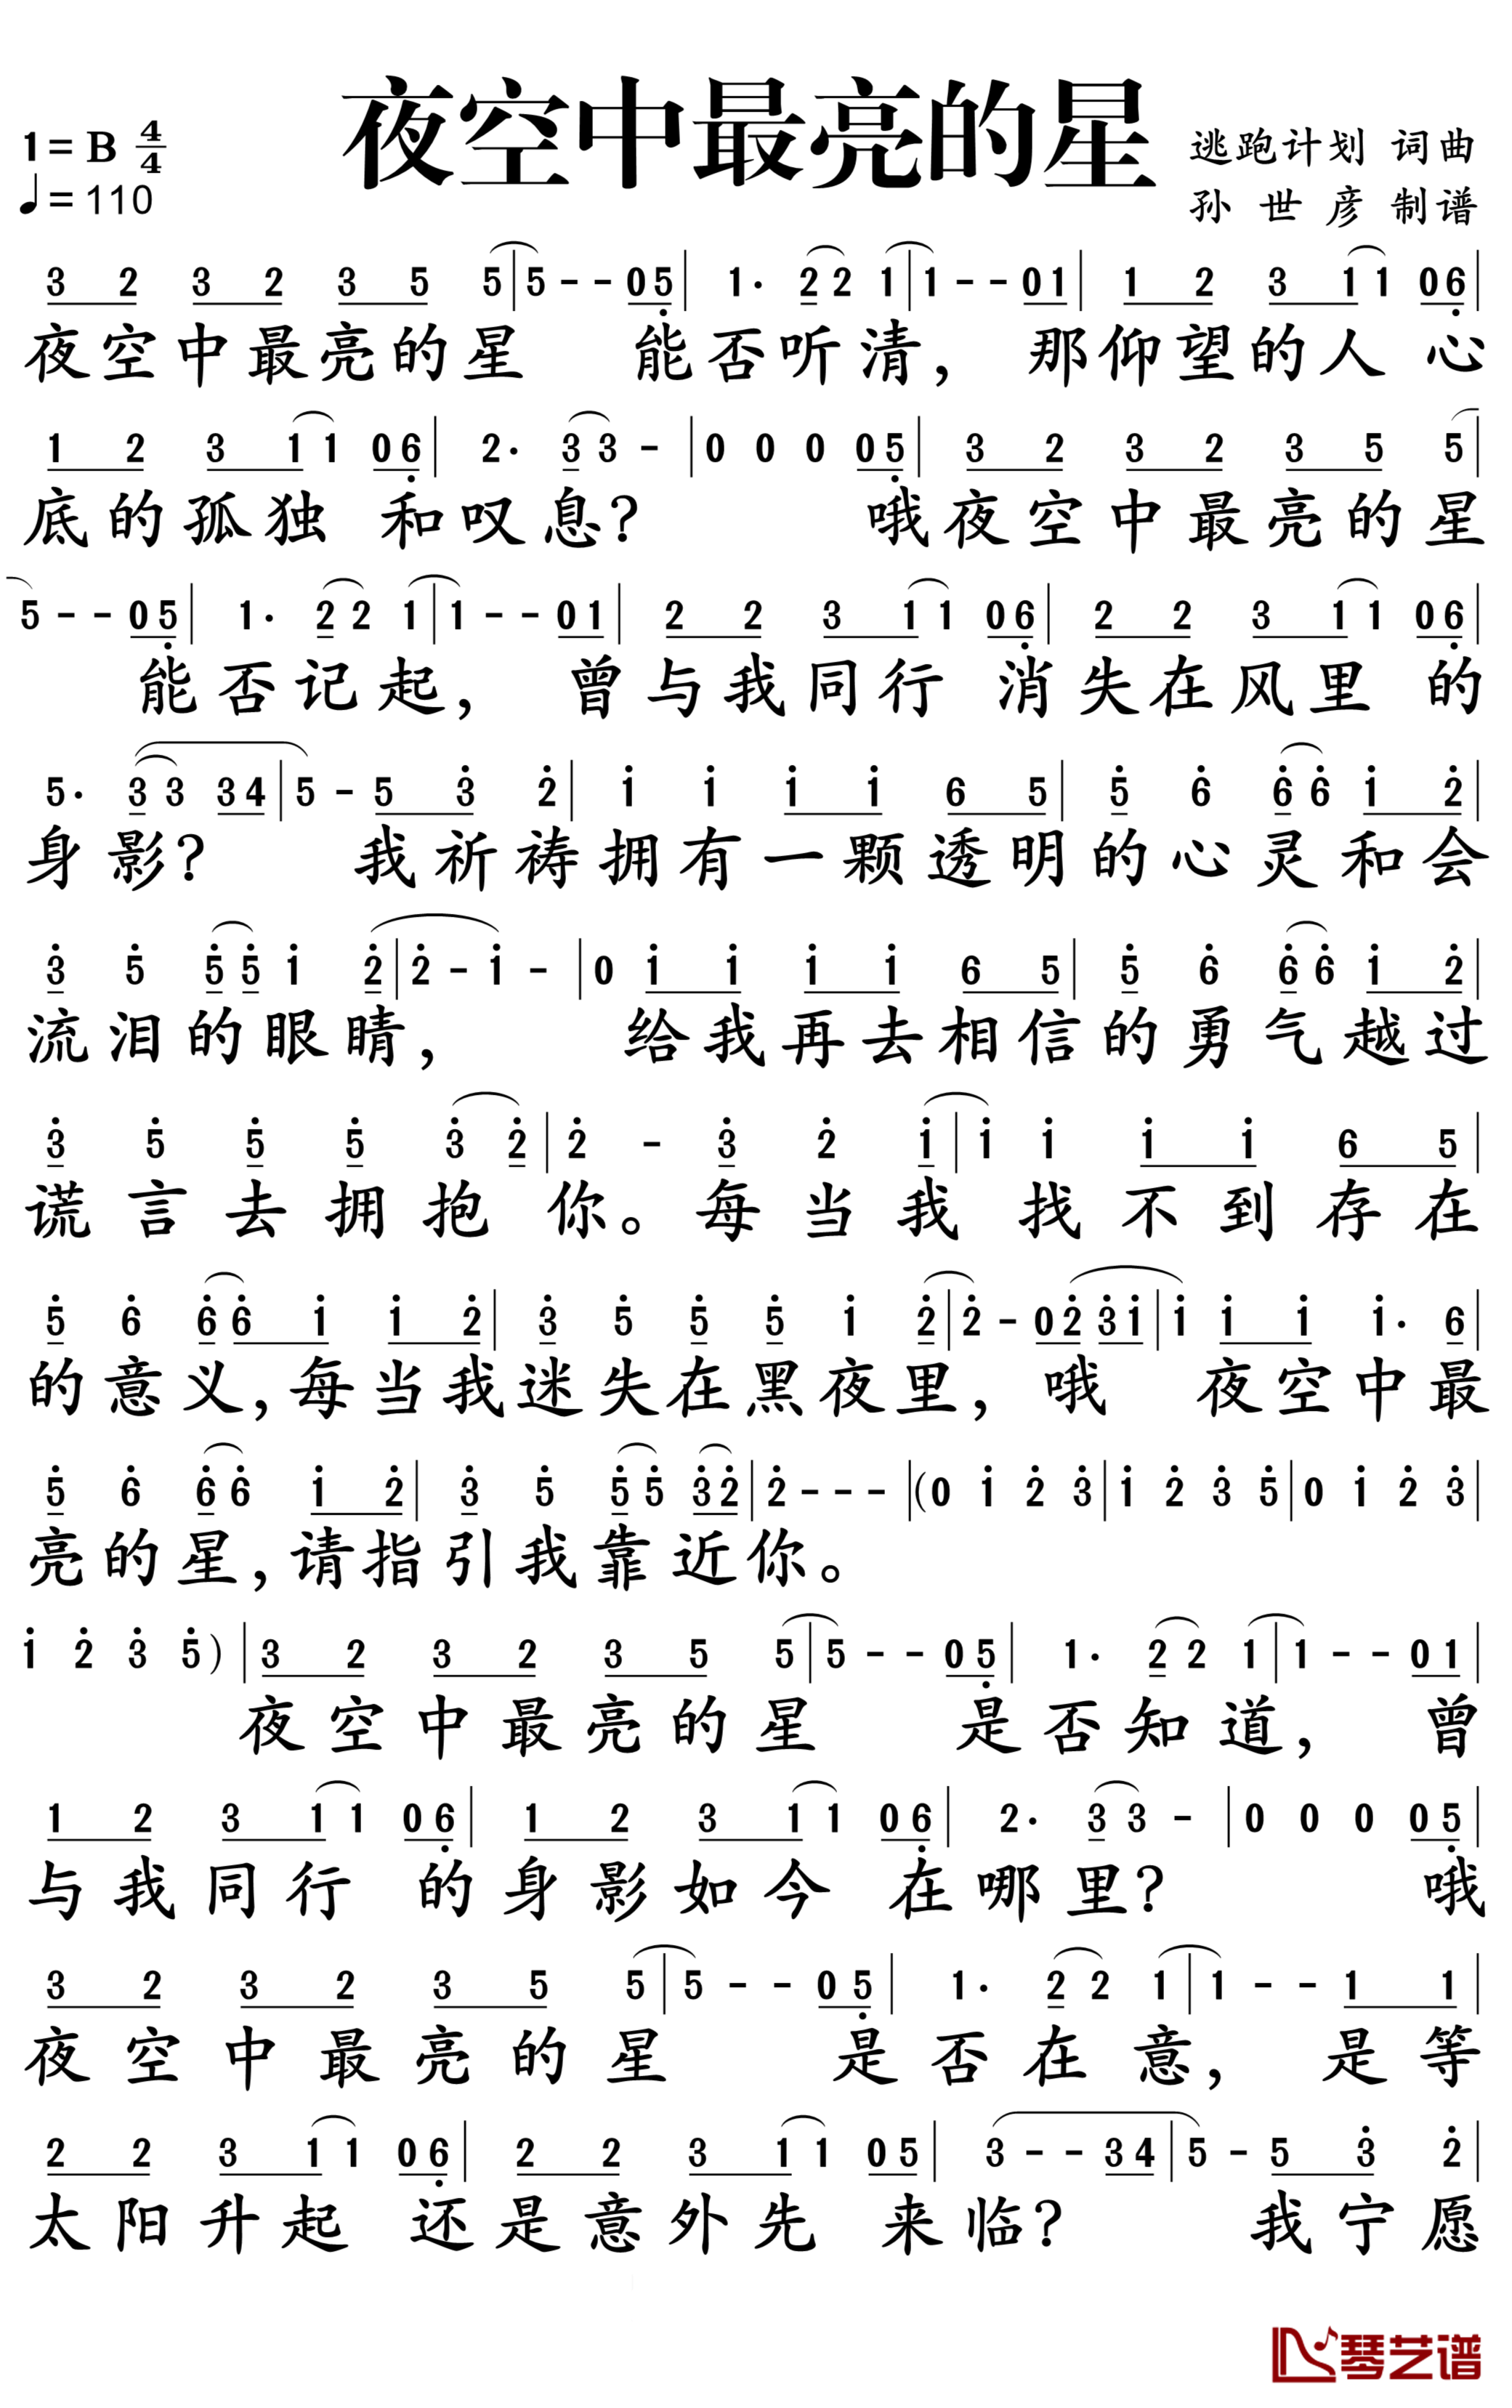 夜空中最亮的星
1=B 4/4
♩=110
逃跑计划 词曲
孙世彦 制谱
3 2 3 2 3 5 5 | 5 - - 0 5̣ | 1· 2 2 1 | 1 - - 0 1 | 1 2 3 1 1 0 6̣ |
夜空中最亮的星 能否听清, 那仰望的人 心
1 2 3 1 1 0 6̣ | 2· 3 3 - | 0 0 0 0 5̣ | 3 2 3 2 3 5 5 |
底的孤独 和叹息? 哦夜空中最亮的星
5 - - 0 5̣ | 1· 2 2 1 | 1 - - 0 1 | 2 2 3 1 1 0 6̣ | 2 2 3 1 1 0 6̣ |
能否记起, 曾与我同行 消失在风里 的
5· 3 3 3 4 | 5 - 5 3̇ 2̇ | 1̇ 1̇ 1̇ 1̇ 6 5 | 5̇ 6̇ 6̇ 6̇ 1̇ 2̇ |
身影? 我祈祷拥有一颗透明的心灵和会
3̇ 5̇ 5̇ 5̇ 1̇ 2̇ | 2̇ - 1̇ - | 0 1̇ 1̇ 1̇ 1̇ 6 5 | 5̇ 6̇ 6̇ 6̇ 1̇ 2̇ |
流泪的眼睛, 给我再去相信的勇气越过
3̇ 5̇ 5̇ 5̇ 3̇ 2̇ | 2̇ - 3̇ 2̇ 1̇ | 1̇ 1̇ 1̇ 1̇ 6 5 |
谎言去拥抱你。每当我找不到存在
5̇ 6̇ 6̇ 6̇ 1̇ 1̇ 2̇ | 3̇ 5̇ 5̇ 5̇ 1̇ 2̇ | 2̇ - 0 2̇ 3̇ 1̇ | 1̇ 1̇ 1̇ 1̇· 6 |
的意义,每当我迷失在黑夜里, 哦 夜空中最
5̇ 6̇ 6̇ 6̇ 1̇ 2̇ | 3̇ 5̇ 5̇ 5̇ 3̇ 2̇ | 2̇ - - - | (0 1̇ 2̇ 3̇ | 1̇ 2̇ 3̇ 5̇ | 0 1̇ 2̇ 3̇ |
亮的星,请指引我靠近你。
1̇ 2̇ 3̇ 5̇) | 3 2 3 2 3 5 5 | 5 - - 0 5̣ | 1· 2 2 1 | 1 - - 0 1 |
夜空中最亮的星 是否知道, 曾
1 2 3 1 1 0 6̣ | 1 2 3 1 1 0 6̣ | 2· 3 3 - | 0 0 0 0 5̣ |
与我同行 的身影如今 在哪里? 哦
3 2 3 2 3 5 5 | 5 - - 0 5̣ | 1· 2 2 1 | 1 - - 1 1 |
夜空中最亮的星 是否在意, 是等
2 2 3 1 1 0 6̣ | 2 2 3 1 1 0 5 | 3 - - 3 4 | 5 - 5 3̇ 2̇ |
太阳升起 还是意外先 来临? 我宁愿
琴艺谱